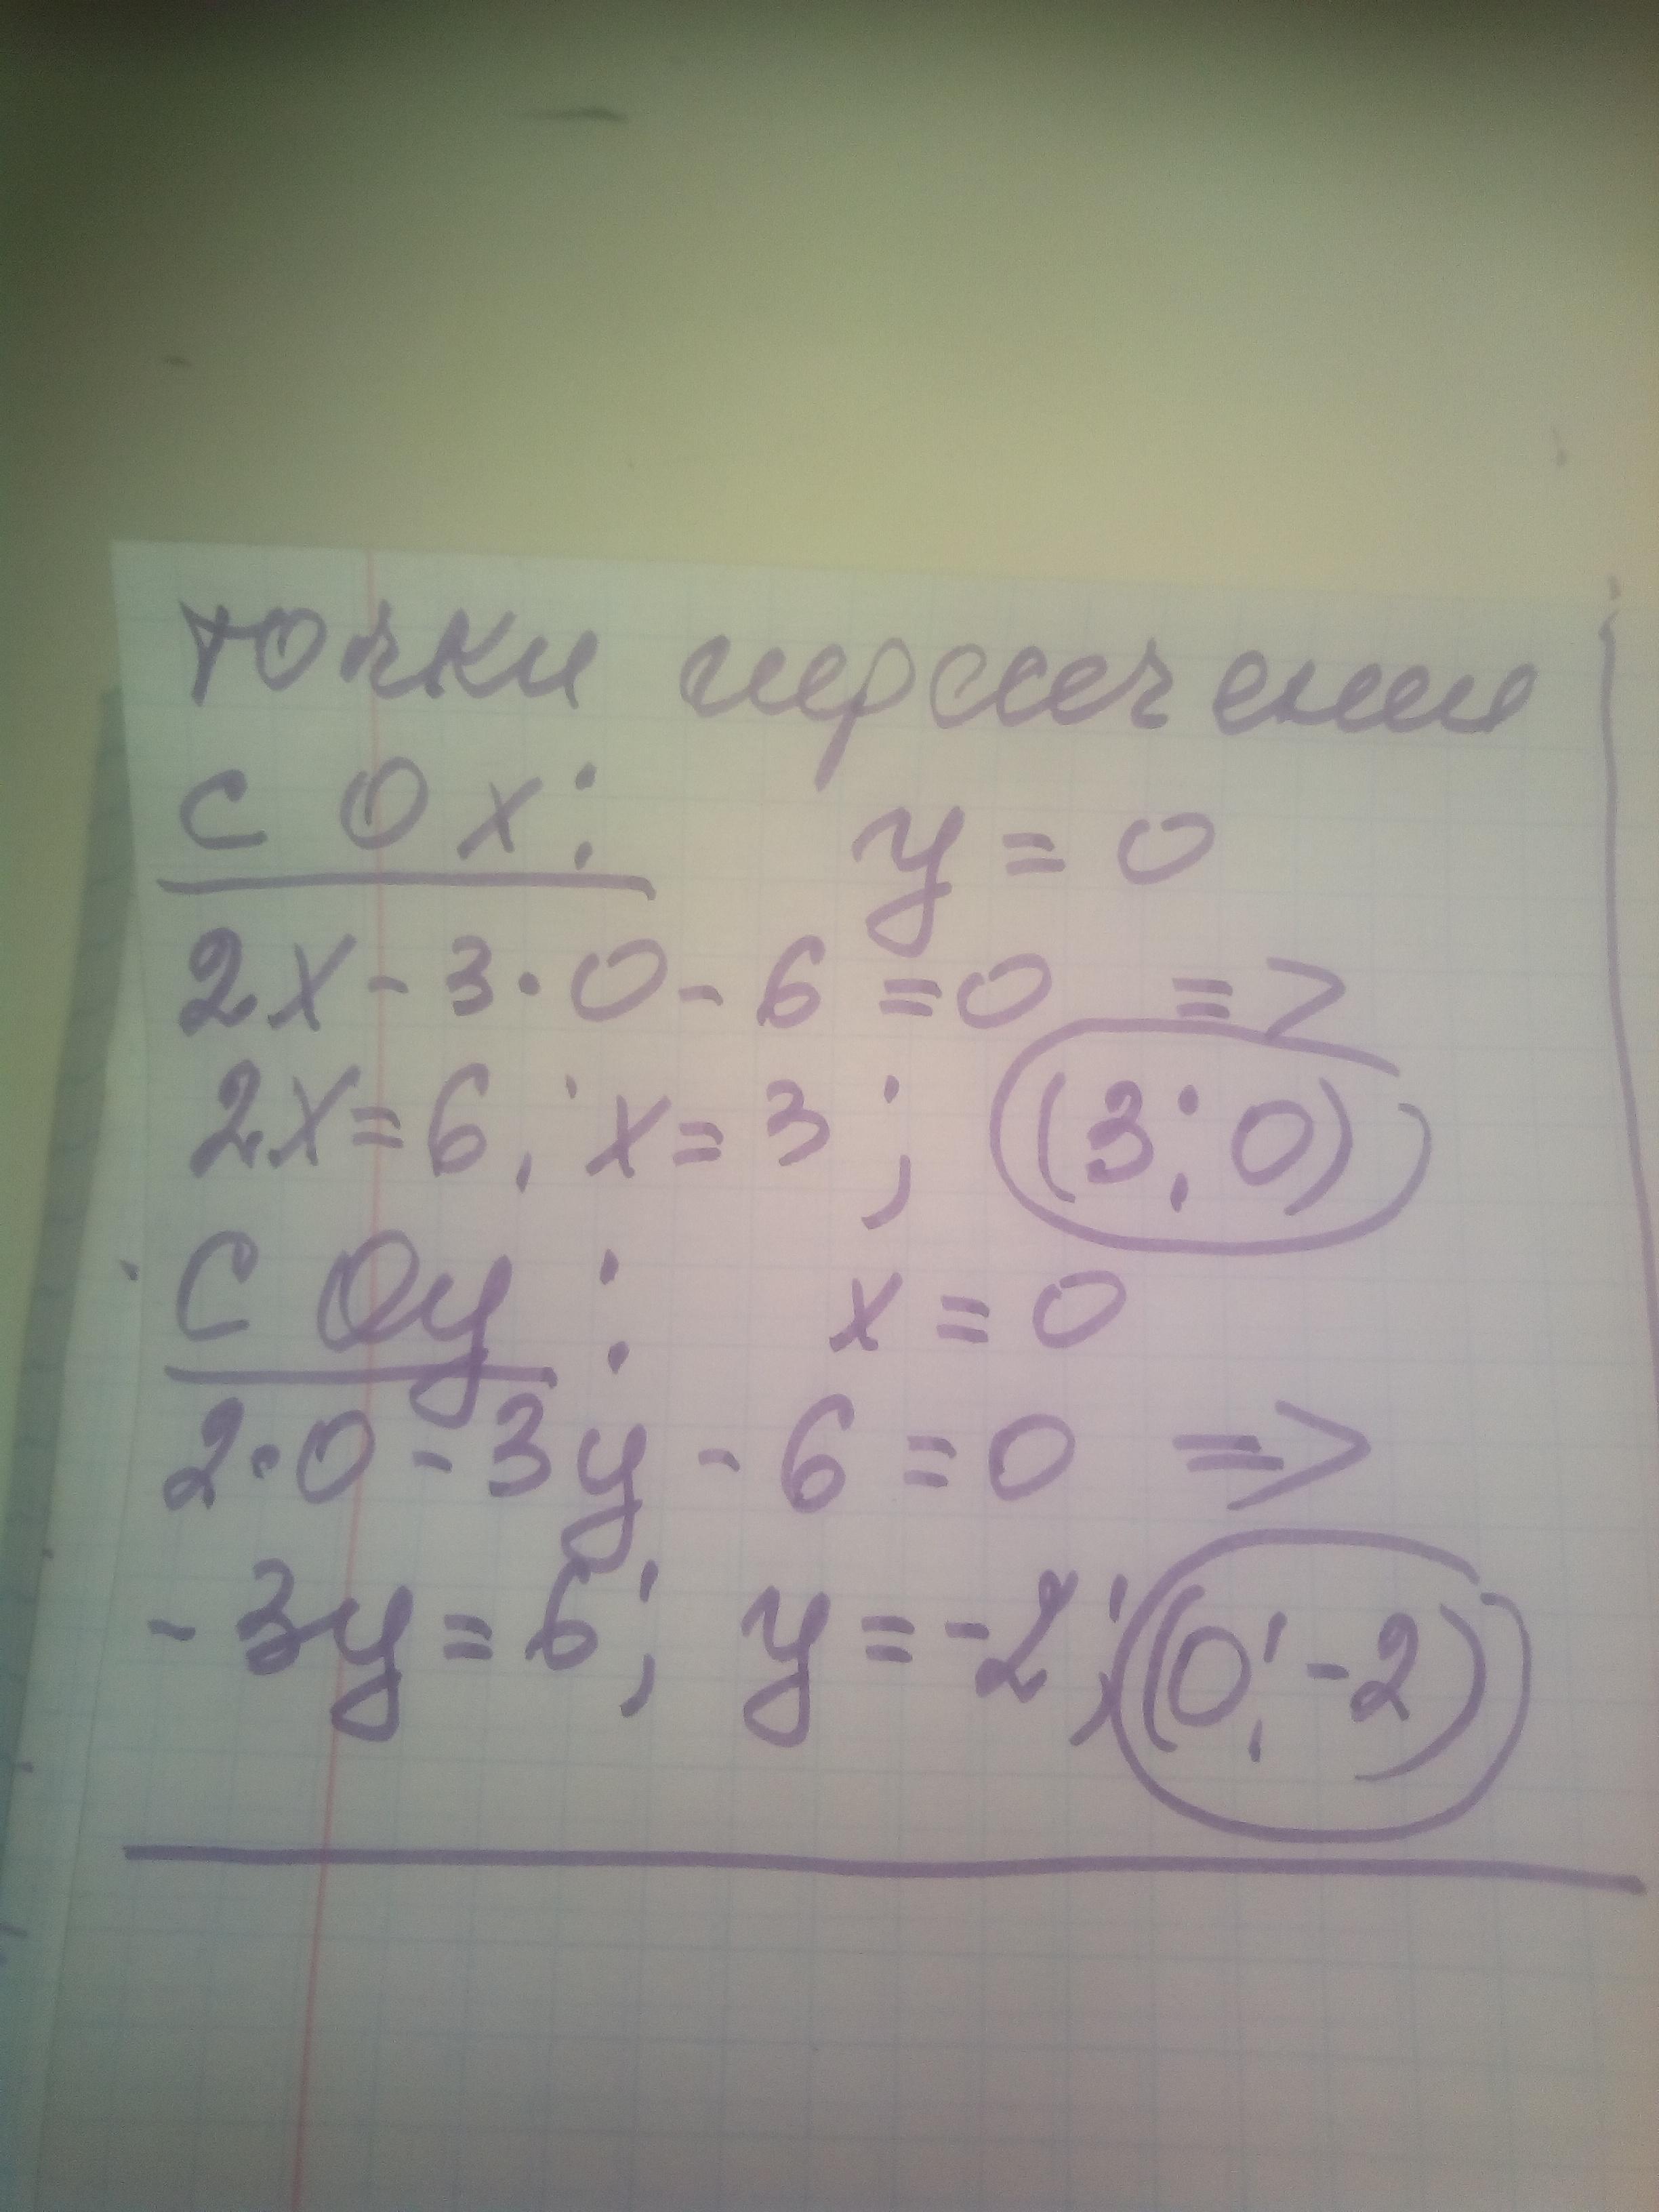 точки пересечения
с Ox: y = 0
2x - 3 · 0 - 6 = 0 =>
2x = 6; x = 3; (3; 0)
с Oy: x = 0
2 · 0 - 3y - 6 = 0 =>
- 3y = 6; y = -2; (0; -2)